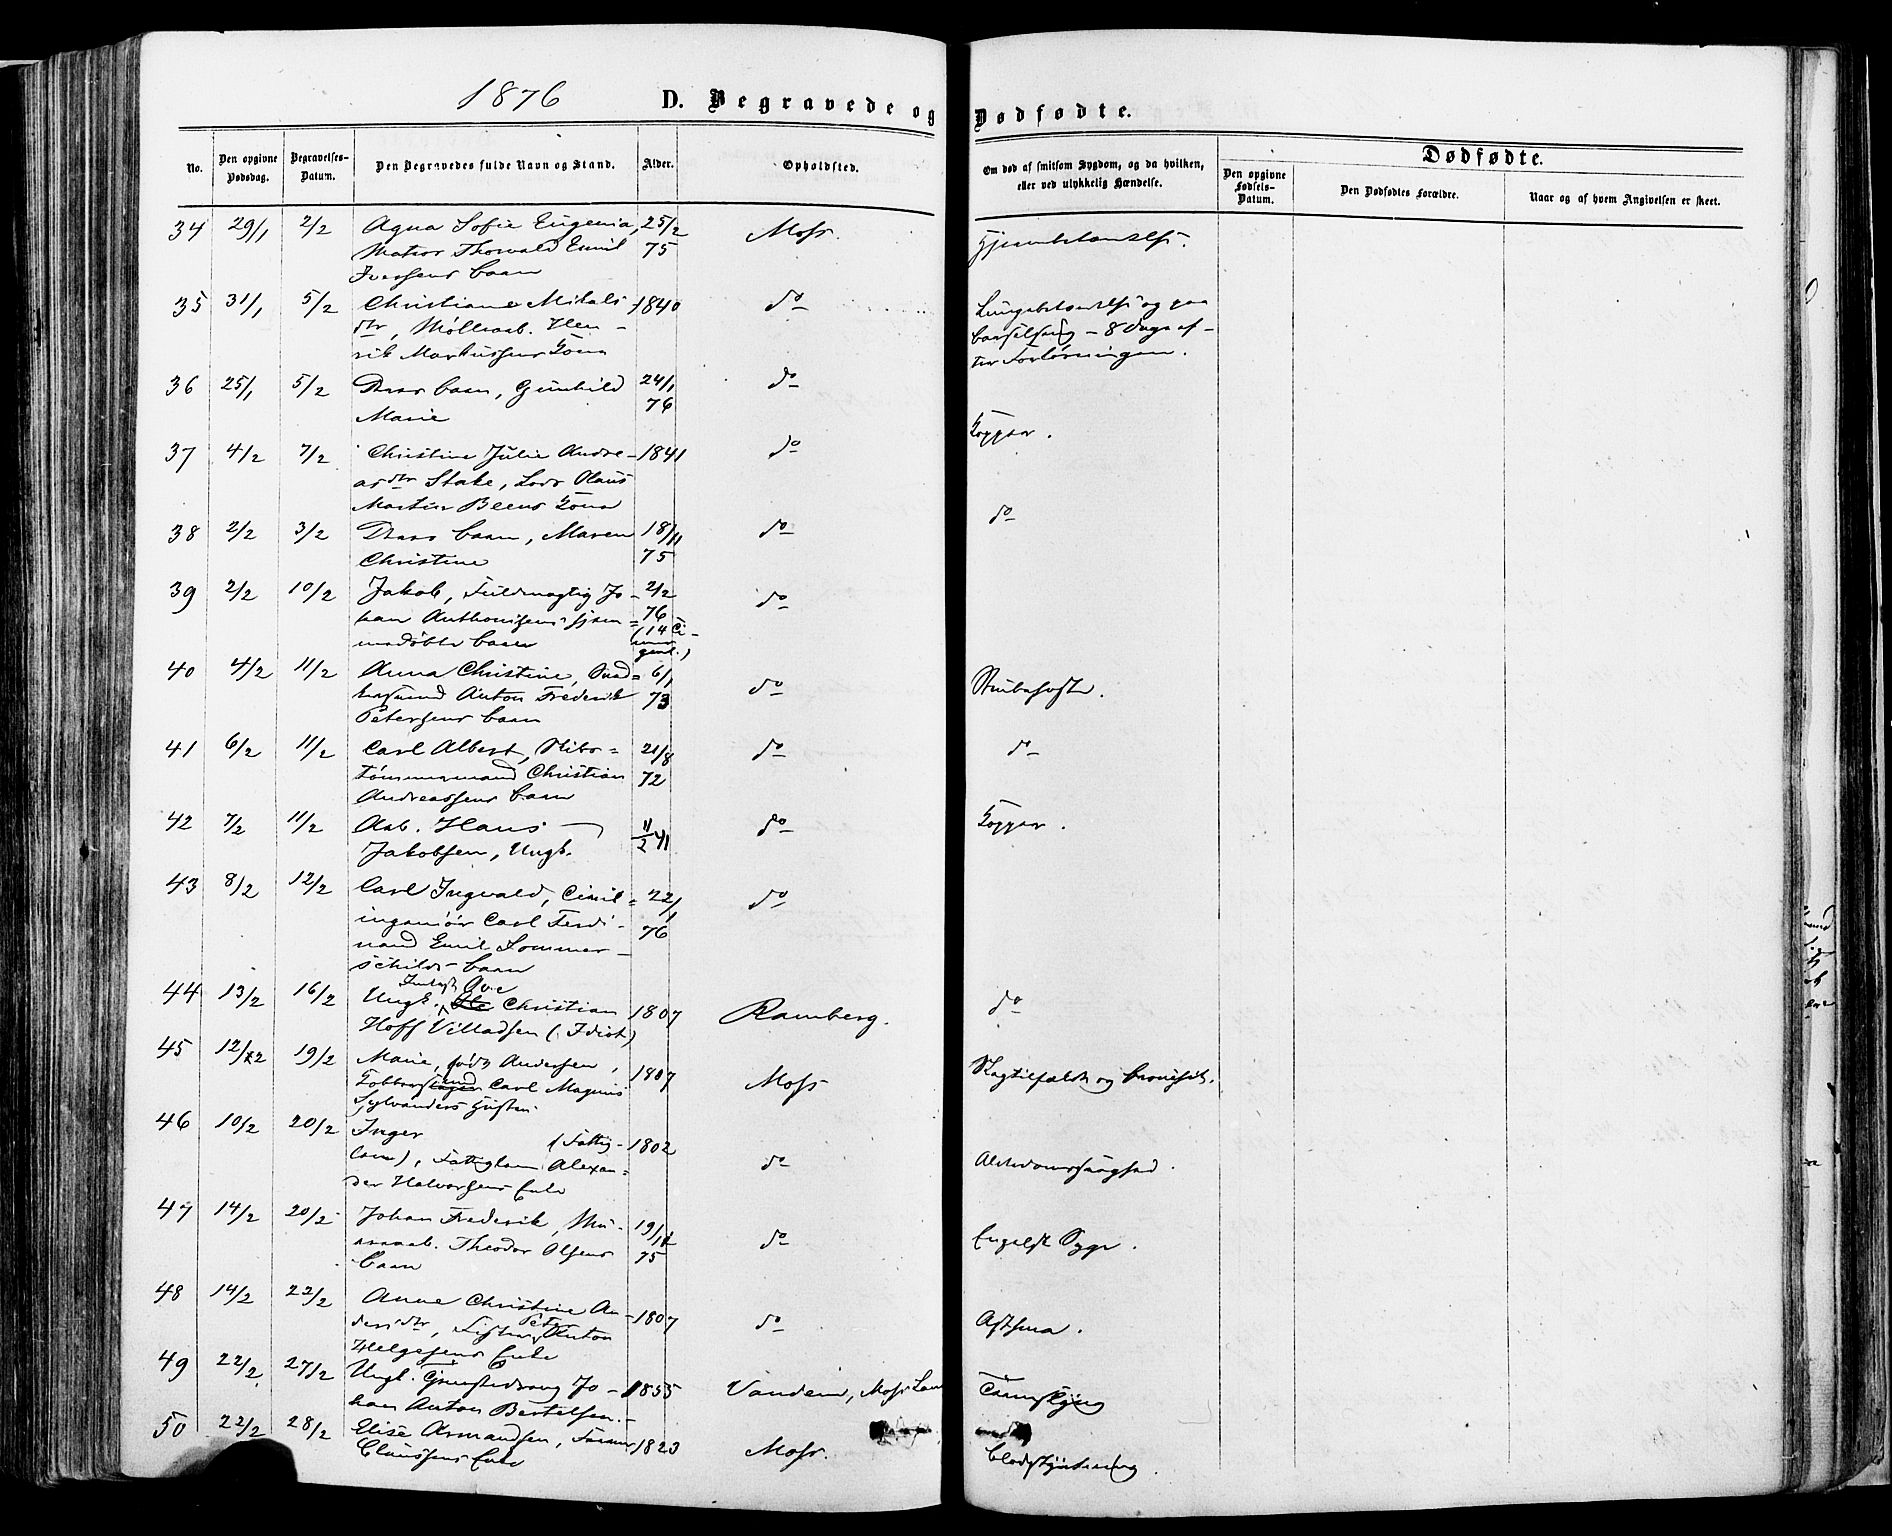 1876
D. Begravede og Dødfødte.
No.
Den opgivne Dødsdag.
Begravelses-Datum.
Den Begravedes fulde Navn og Stand.
Alder.
Opholdsted.
Om død af smitsom Sygdom, og da hvilken, eller ved ulykkelig Hændelse.
Dødfødte.
Den opgivne Fødsels-Datum.
Den Dødfødtes Forældre.
Naar og af hvem Angivelsen er skeet.
34 29/1 2/2 Agna Sofie Eugenia, 25/2 Moss.
Thorwald Emil 75
Iversens barn
35 31/1 5/2 Christiane Mikals- 1840 do
dtr, Møllearb. Hen-
rik Markussens Kona
barselseng - 8 Dage ef-
ter Forløsningen.
36 25/1 5/2 barn, Gunhild 24/1 do
Marie 76
37 4/2 7/2 Christine Julie Andre- 1841 do Kopper.
asdtr Stake, Lods Olaus
Martin Beens Kona
38 2/2 3/2 barn, Maren 18/11 do do
Christine 75
39 2/2 10/2 Jakob, Fuldmægtig Jo- 2/2 do
han Anthonisens hjem- 76
medøbte barn (14 Ti-
mer gml.)
40 4/2 11/2 Anna Christine, 6/1 do Strubehoste.
Anton Frederik 73
Petersens barn
41 6/2 11/2 Carl Albert, Skibs- 21/8 do do
tømmermand Christian 72
Andreassens barn
42 7/2 11/2 Arb. Hans 11/2 41 do Kopper.
Jakobsen, Ungk.
43 8/2 12/2 Carl Ingvald, Civil- 22/1 do
ingeniör Carl Ferdi- 76
nand Emil Sommer-
schilds barn
44 13/2 16/2 Ungk. Ove Christian 1807 Ramberg. do
Hoff Villadsen (: Idiot)
45 12/2 19/2 Marie, født Andersen, 1807 Moss
Carl Magnus
Sylvanders Hustru.
46 10/2 20/2 Inger (Fattig- 1802 do Alderdomssvaghed.
lem), Fattiglem Alexan-
der Halvorsens Enke
47 14/2 20/2 Johan Frederik, Mu- 19/12 do Engelsk Syge.
rerarb. Theodor Olsens 75
barn
48 14/2 22/2 Anne Christine An- 1807 do Asthma.
dersdtr, Peter Anton
Helgesens Enke
49 22/2 27/2 Ungk. Jo- 1855 Vandem, Moss Land
han Anton Bertelsen.
50 22/2 28/2 Elise Armandsen, 1823 Moss. Blodstyrtning.
Claussens Enke